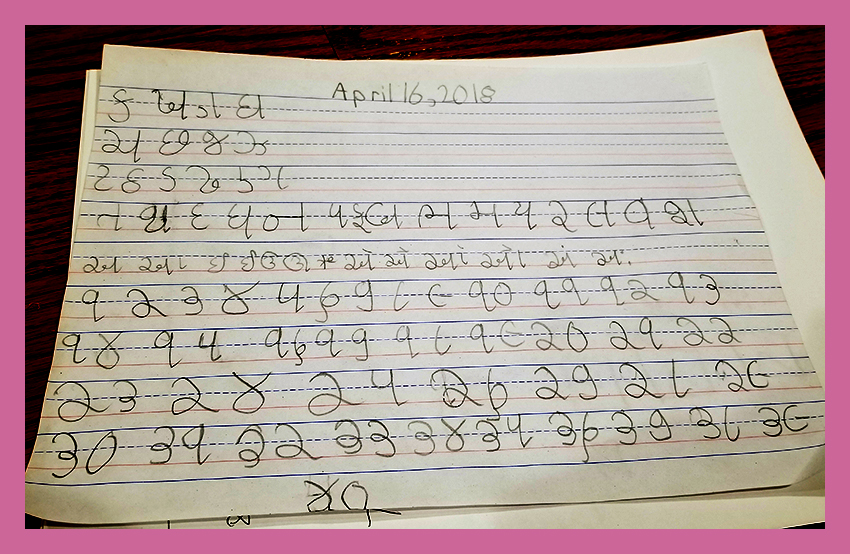 April 16, 2018
ક ખ ગ ઘ
ચ છ જ ઝ
ટ ઠ ડ ઢ ણ
ત થ દ ધ ન પ ફ બ ભ મ ય ર લ વ શ
અ આ ઇ ઈ ઉ ઊ ઋ એ ઐ ઓ ઔ અં અઃ
૧ ૨ ૩ ૪ ૫ ૬ ૭ ૮ ૯ ૧૦ ૧૧ ૧૨ ૧૩
૧૪ ૧૫ ૧૬ ૧૭ ૧૮ ૧૯ ૨૦ ૨૧ ૨૨
૨૩ ૨૪ ૨૫ ૨૬ ૨૭ ૨૮ ૨૯
૩૦ ૩૧ ૩૨ ૩૩ ૩૪ ૩૫ ૩૬ ૩૭ ૩૮ ૩૯
૪૦